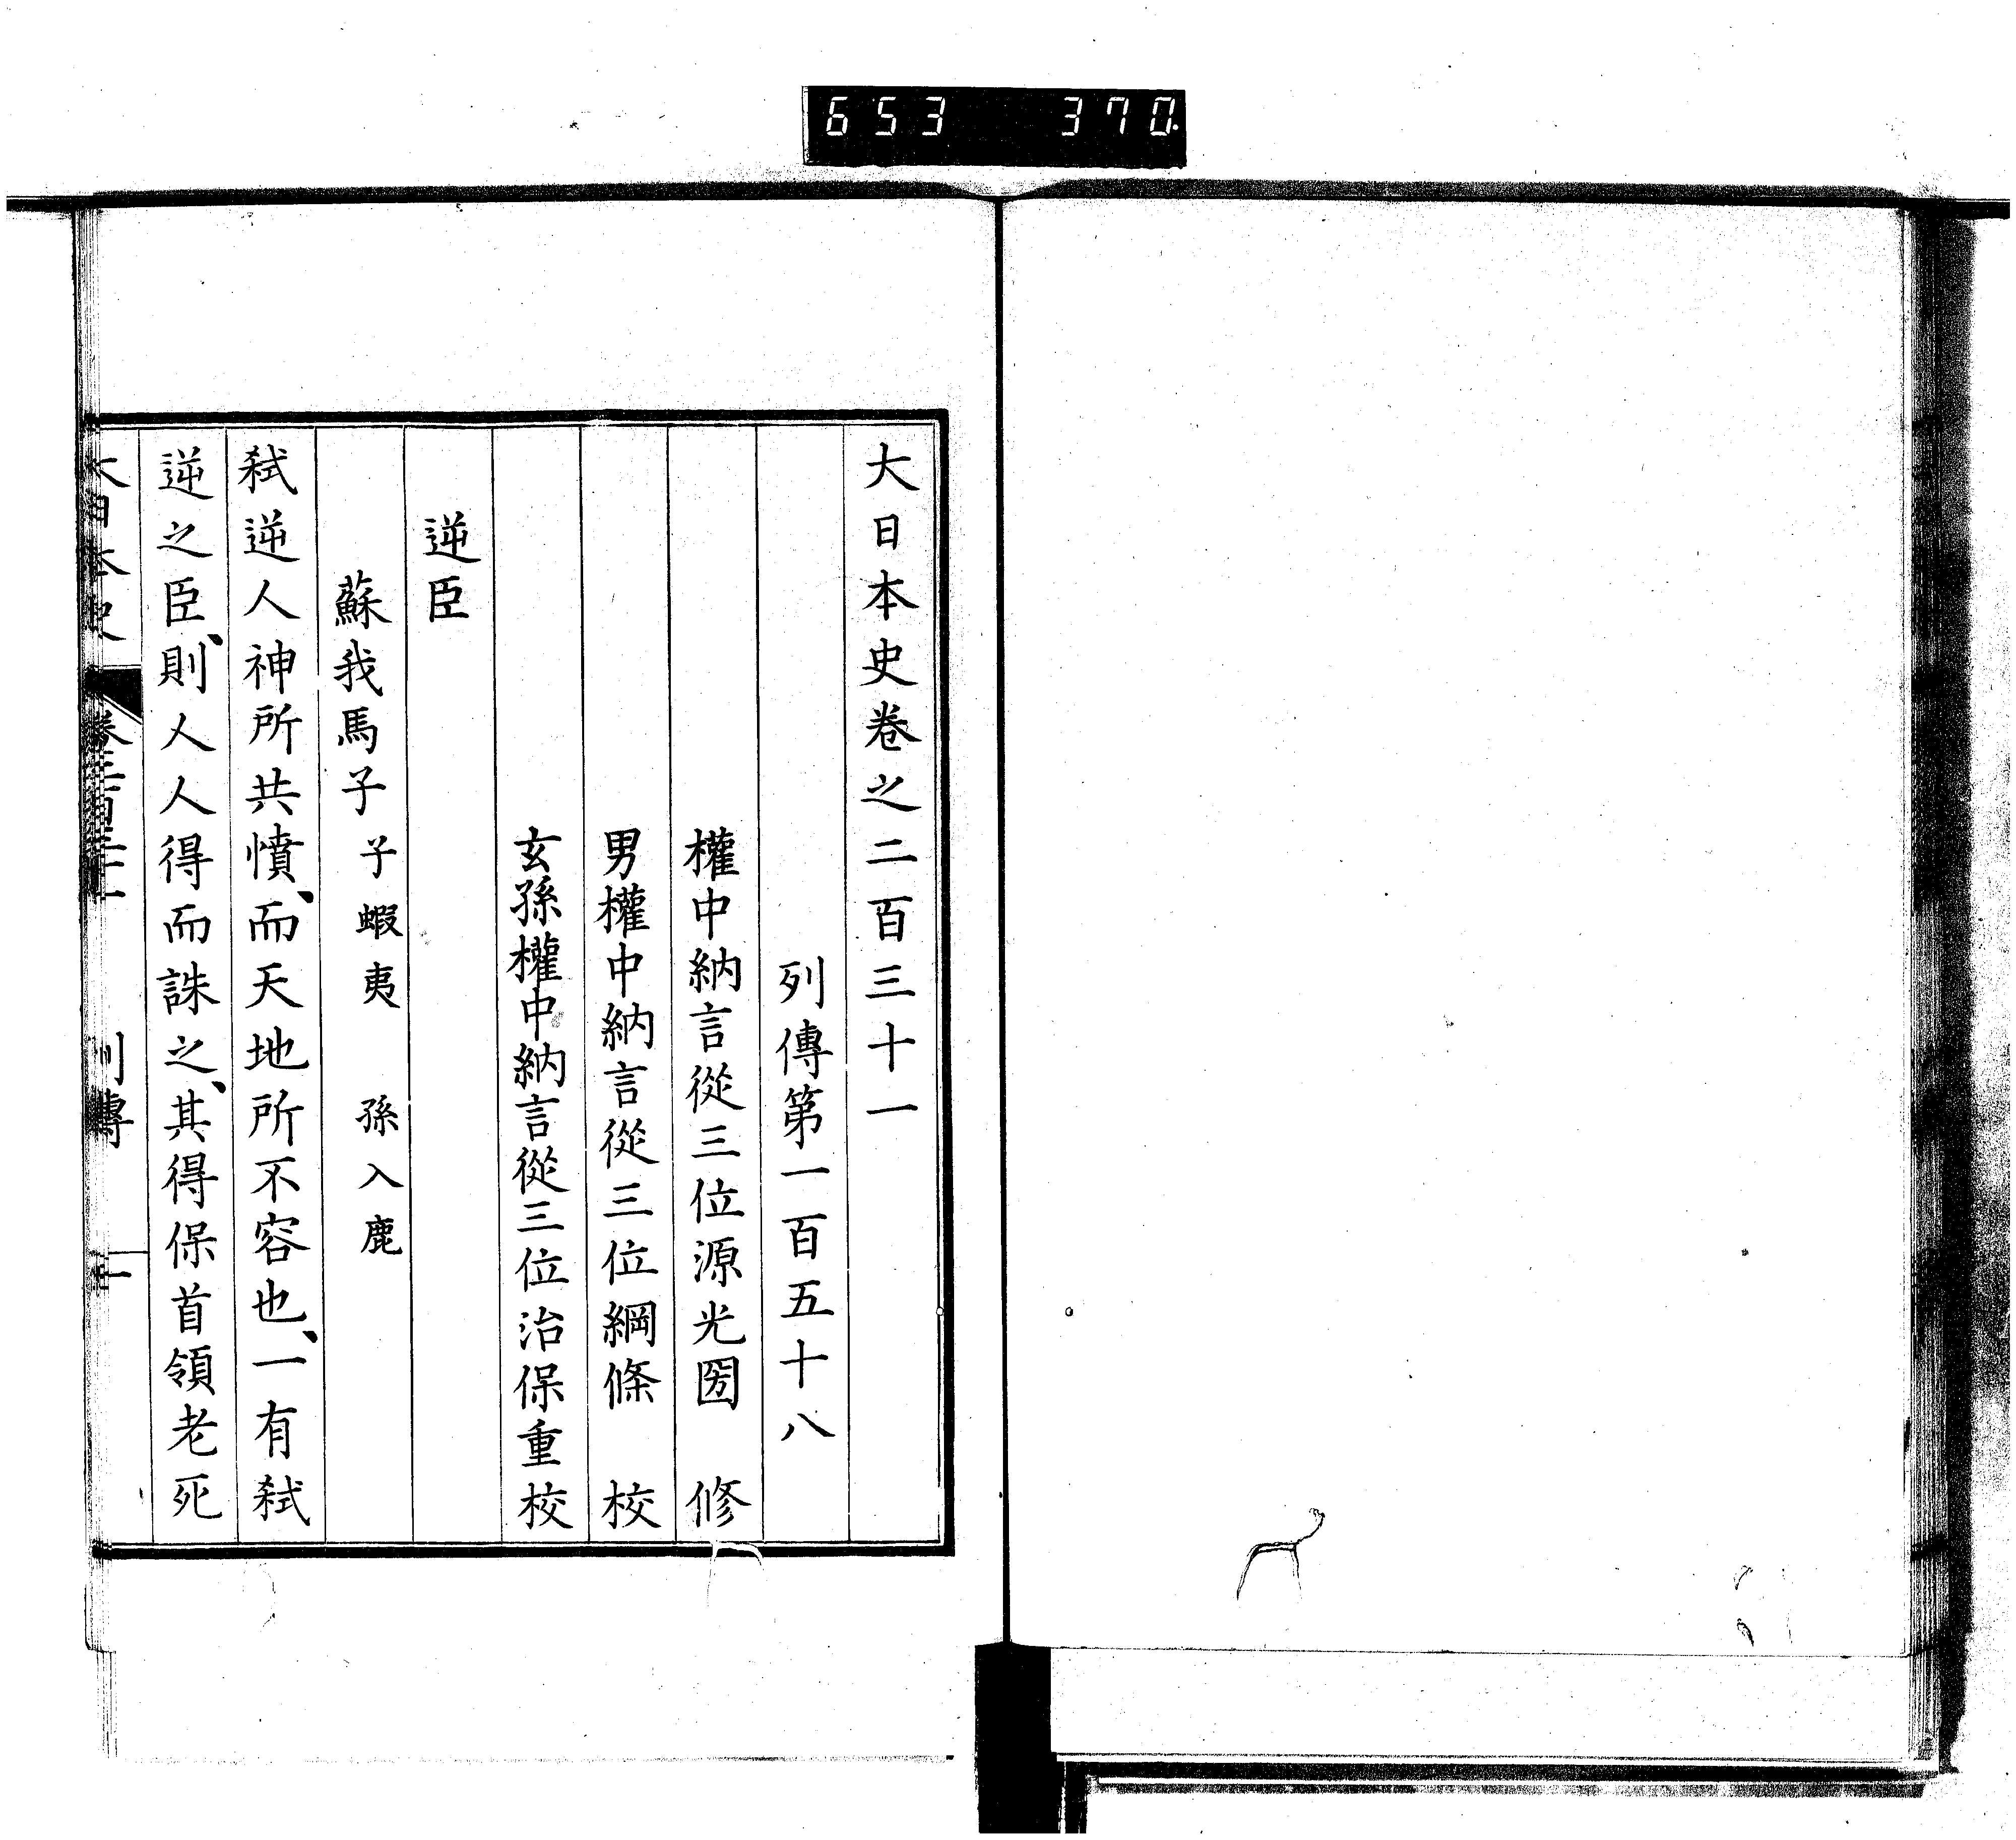 653 370.
大日本史卷之二百三十一
列傳第一百五十八
權中納言從三位源光圀 修
男權中納言從三位綱條 校
玄孫權中納言從三位治保重校
逆臣
蘇我馬子 子蝦夷 孫入鹿
弑逆人神所共憤、而天地所不容也、一有弑
逆之臣、則人人得而誅之、其得保首領老死
大日本史 列傳